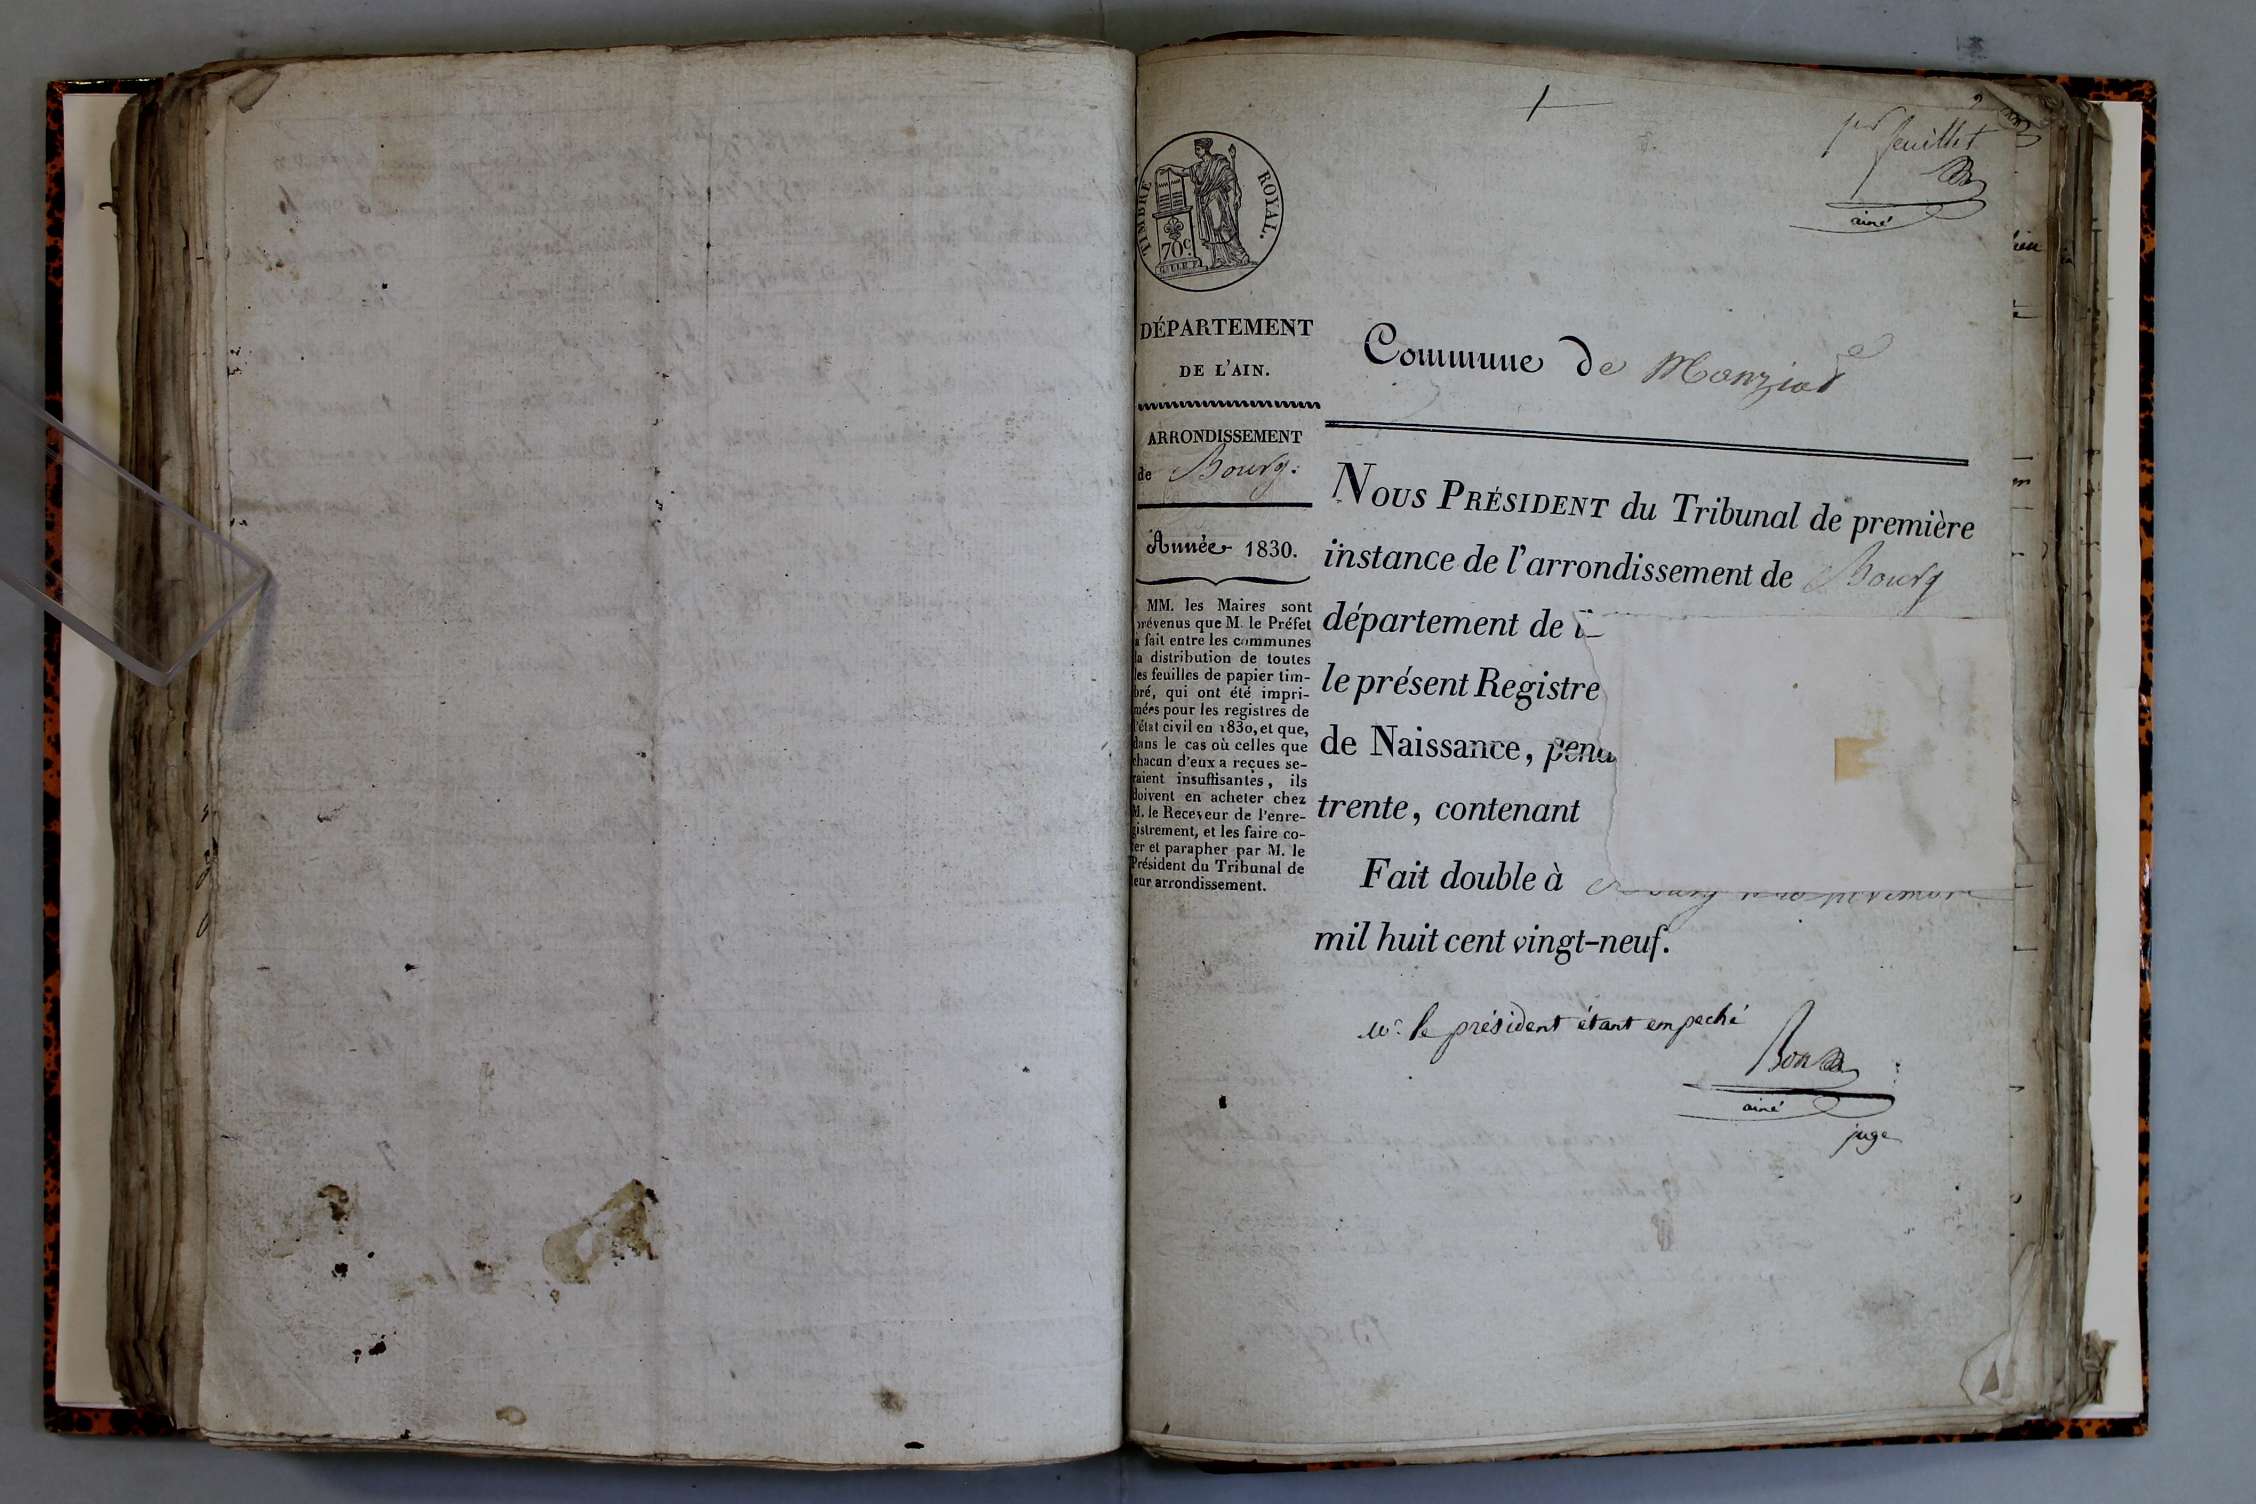 1
1er feuillet
ainé
TIMBRE ROYAL.
70c.
DÉPARTEMENT
DE L'AIN.
ARRONDISSEMENT
de Bourg.
Année 1830.
MM. les Maires sont
prévenus que M. le Préfet
a fait entre les communes
la distribution de toutes
les feuilles de papier tim-
bré, qui ont été impri-
mées pour les registres de
l'état civil en 1830, et que,
dans le cas où celles que
chacun d'eux a reçues se-
raient insuffisantes, ils
doivent en acheter chez
M. le Receveur de l'enre-
gistrement, et les faire co-
ter et parapher par M. le
Président du Tribunal de
leur arrondissement.
Commune de Manziat
NOUS PRÉSIDENT du Tribunal de première
instance de l'arrondissement de Bourg
département de
le présent Registre
de Naissance,
trente, contenant
Fait double à Bourg
mil huit cent vingt-neuf.
Mr le président étant empeché
ainé
juge